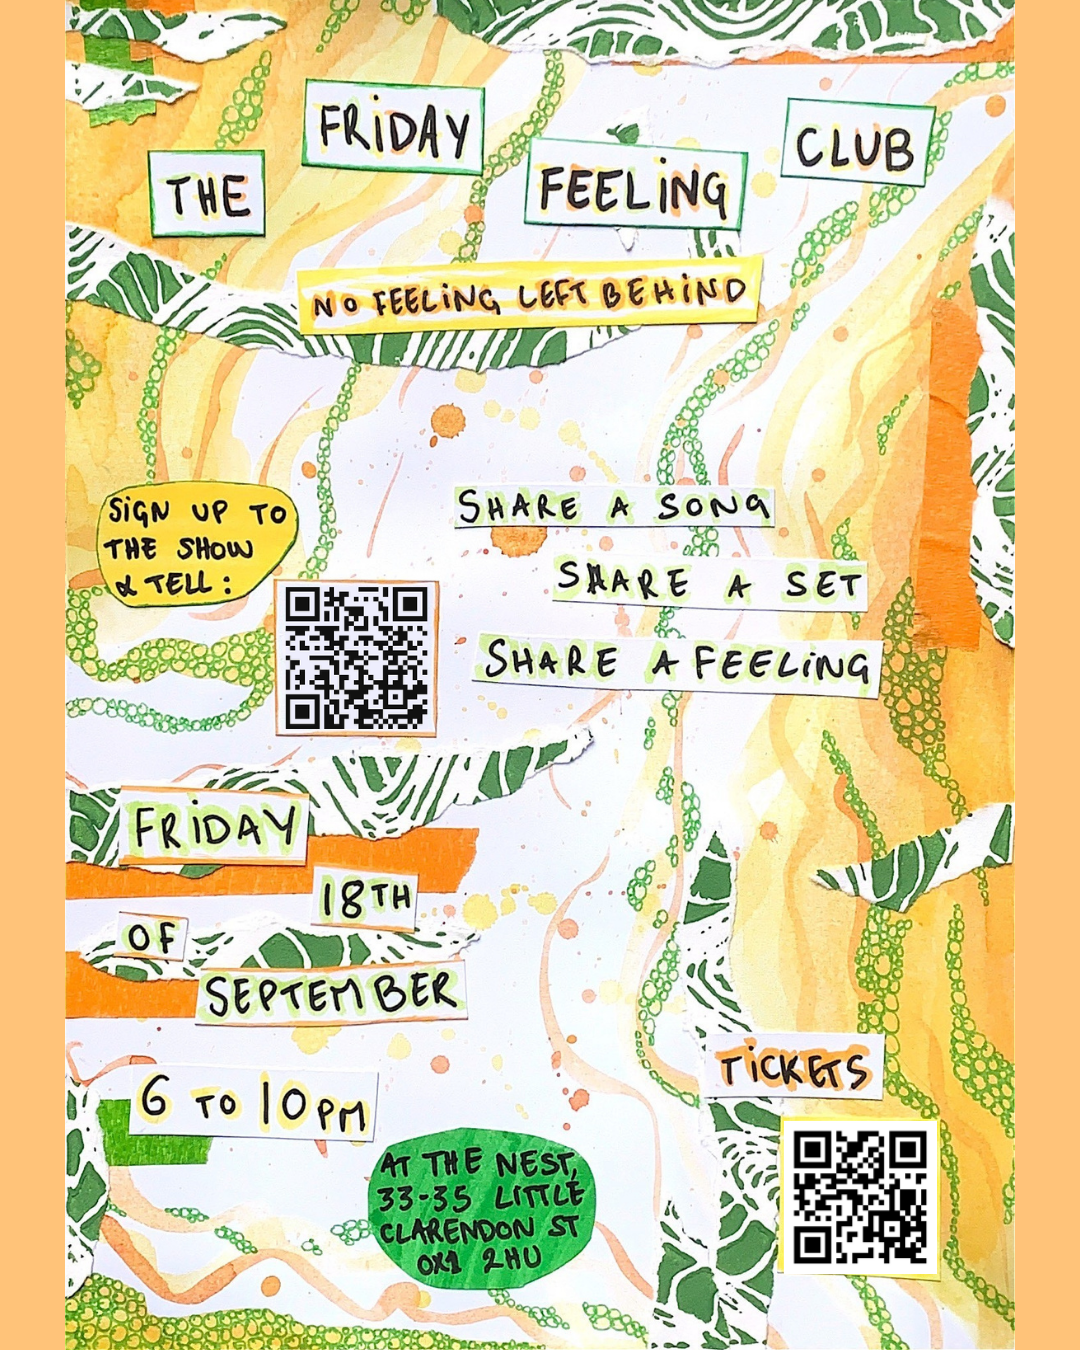 THE FRIDAY FEELING CLUB
NO FEELING LEFT BEHIND
SIGN UP TO
THE SHOW
& TELL:
SHARE A SONG
SHARE A SET
SHARE A FEELING
FRIDAY
18TH
OF
SEPTEMBER
6 TO 10PM
AT THE NEST,
33-35 LITTLE
CLARENDON ST
OX1 2HU
TICKETS